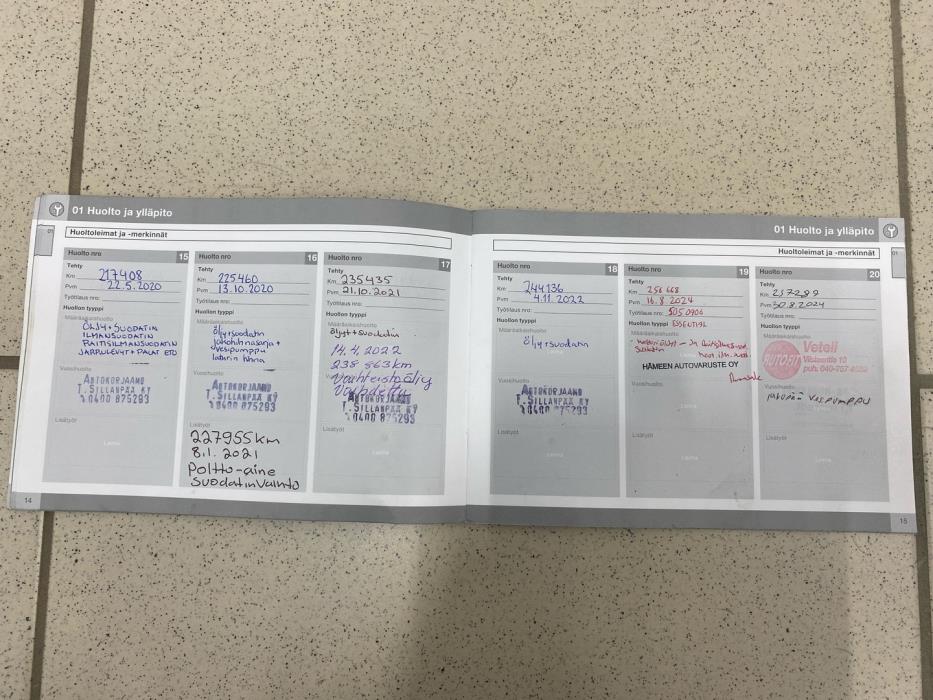 01 Huolto ja ylläpito
01
Huoltoleimat ja -merkinnät
Huolto nro 15
Tehty
Km 217408
Pvm 22.5.2020
Työtilaus nro:
Huollon tyyppi
Määräaikaishuolto
ÖLJY+SUODATIN
ILMANSUODATIN
RAITISILMANSUODATIN
JARRULEVYT+PALAT ETU
Vuosihuolto
AUTOKORJAAMO
T. SILLANPÄÄ KY
0400 875293
Lisätyöt
Leima
Huolto nro 16
Tehty
Km 225460
Pvm 13.10.2020
Työtilaus nro:
Huollon tyyppi
Määräaikaishuolto
öljy+suodatin
jakohihnasarja+
vesipumppu
laturin hihna
AUTOKORJAAMO
T. SILLANPÄÄ KY
0400 875293
Lisätyöt
227955km
8.1.2021
Poltto-aine
suodatin vaihto
Huolto nro 17
Tehty
Km 235435
Pvm 21.10.2021
Työtilaus nro:
Huollon tyyppi
Määräaikaishuolto
öljyt+suodatin
14.4.2022
238 563km
Vaihteistoöljy
Vaihdettu
AUTOKORJAAMO
T. SILLANPÄÄ KY
0400 875293
Lisätyöt
Leima
14
01 Huolto ja ylläpito
01
Huoltoleimat ja -merkinnät
Huolto nro 18
Tehty
Km 244136
Pvm 4.11.2022
Työtilaus nro:
Huollon tyyppi
Määräaikaishuolto
öljy+suodatin
Leima
Vuosihuolto
AUTOKORJAAMO
T. SILLANPÄÄ KY
0400 875293
Lisätyöt
Leima
Huolto nro 19
Tehty
Km 256668
Pvm 16.8.2024
Työtilaus nro: 5050906
Huollon tyyppi ESSENTIAL
Määräaikaishuolto
HÄMEEN AUTOVARUSTE OY
Vuosihuolto
Leima
Lisätyöt
Leima
Huolto nro 20
Tehty
Km 257289
Pvm 30.8.2024
Työtilaus nro:
Huollon tyyppi
Määräaikaishuolto
AUTOFIT
Veteli
Vuosihuolto
Vesipumppu
Lisätyöt
Leima
15